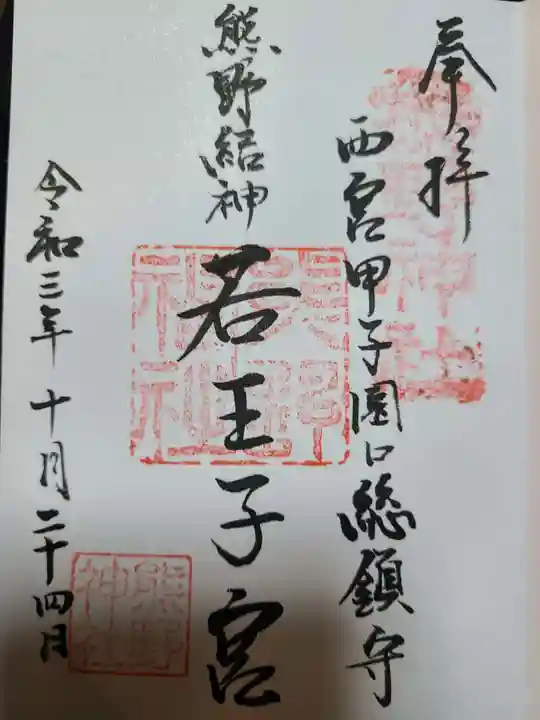 奉拝
西宮甲子園口総鎮守
熊野結神
若王子宮
令和三年十月二十四日
熊野
神社